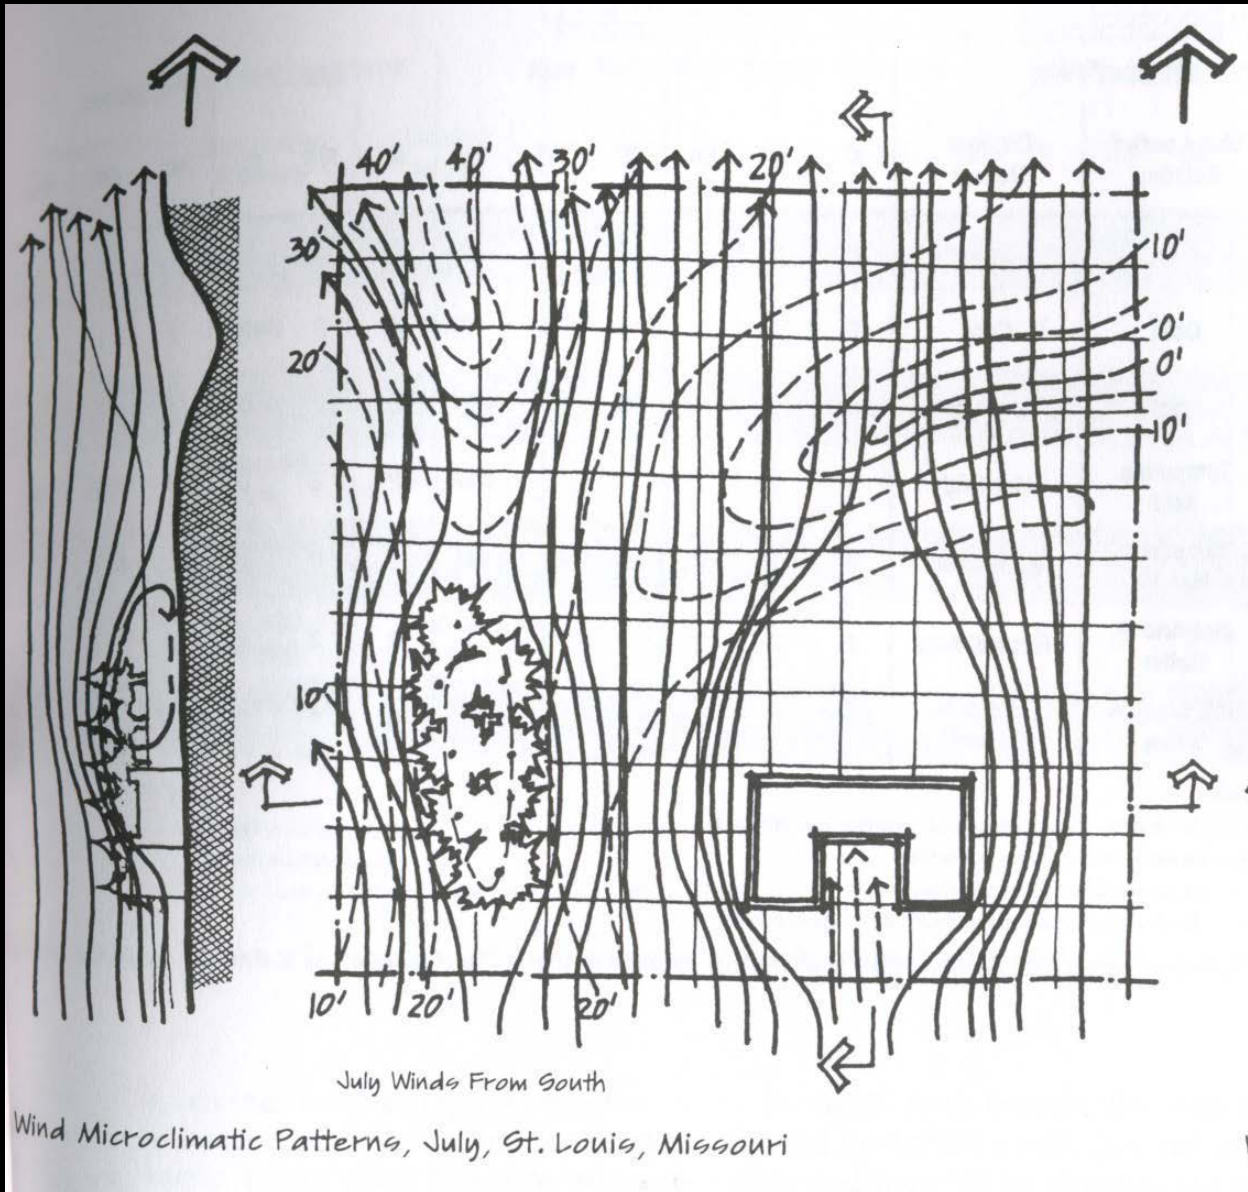 40' 40' 30' 20'
30'
20'
10'
10'
0'
0'
10'
10' 20' 20'
July Winds From South
Wind Microclimatic Patterns, July, St. Louis, Missouri